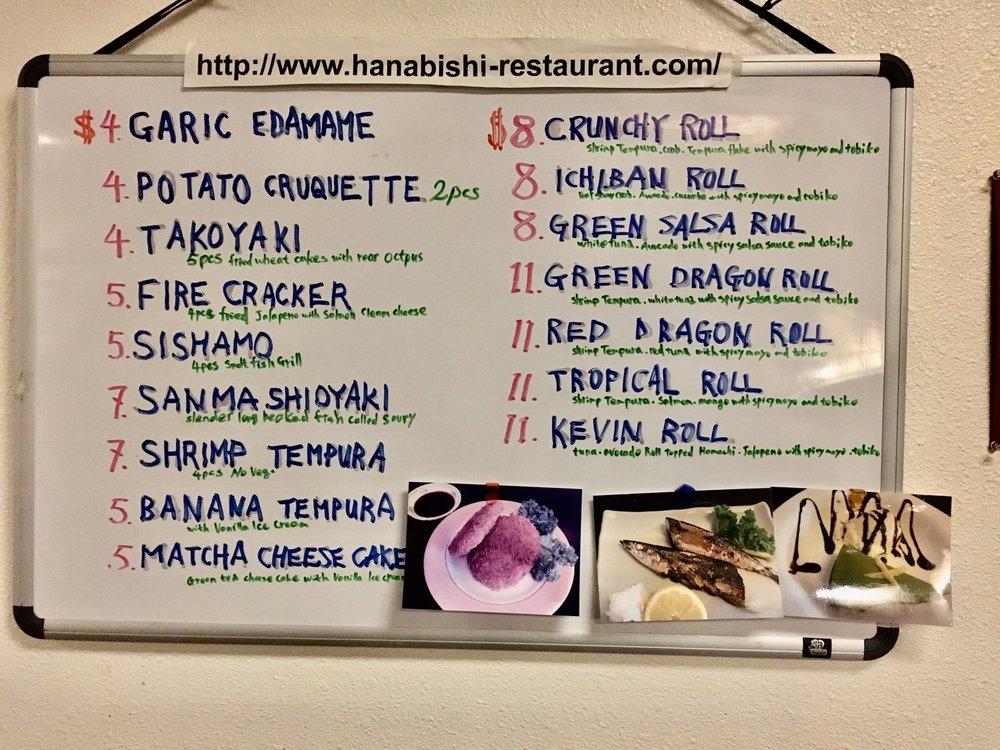 http://www.hanabishi-restaurant.com/
$4. GARIC EDAMAME
4. POTATO CRUQUETTE 2pcs
4. TAKOYAKI
5pcs fried wheat cakes with rear octpus
5. FIRE CRACKER
4pcs fried Jalapeno with Salmon Cleam cheese
5. SISHAMO
4pcs Smelt fish Grill
7. SANMA SHIOYAKI
slender long beaked fish called Saury
7. SHRIMP TEMPURA
4pcs No Veg.
5. BANANA TEMPURA
with Vanilla Ice Cream
5. MATCHA CHEESE CAKE
Green tea cheese cake with Vanilla Ice cream
$8. CRUNCHY ROLL
Shrimp Tempura. Crab. Tempura flake with spicy mayo and tobiko
8. ICHIBAN ROLL
crab. Avocado. cucumber with spicy mayo and tobiko
8. GREEN SALSA ROLL
white tuna. Avocado with spicy salsa sauce and tobiko
11. GREEN DRAGON ROLL
Shrimp Tempura. white tuna with spicy Salsa sauce and tobiko
11. RED DRAGON ROLL
Shrimp Tempura. red tuna with spicy mayo and tobiko
11. TROPICAL ROLL
Shrimp Tempura. Salmon. mango with spicy mayo and tobiko
11. KEVIN ROLL
tuna. avocado Roll topped Hamachi. Jalapeno with spicy mayo. tobiko